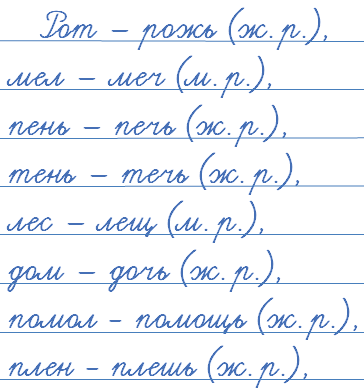 Рот – рожь (ж. р.),
мел – меч (м. р.),
пень – печь (ж. р.),
тень – течь (ж. р.),
лес – лещ (м. р.),
дом – дочь (ж. р.),
помол - помощь (ж. р.),
плен - плешь (ж. р.),